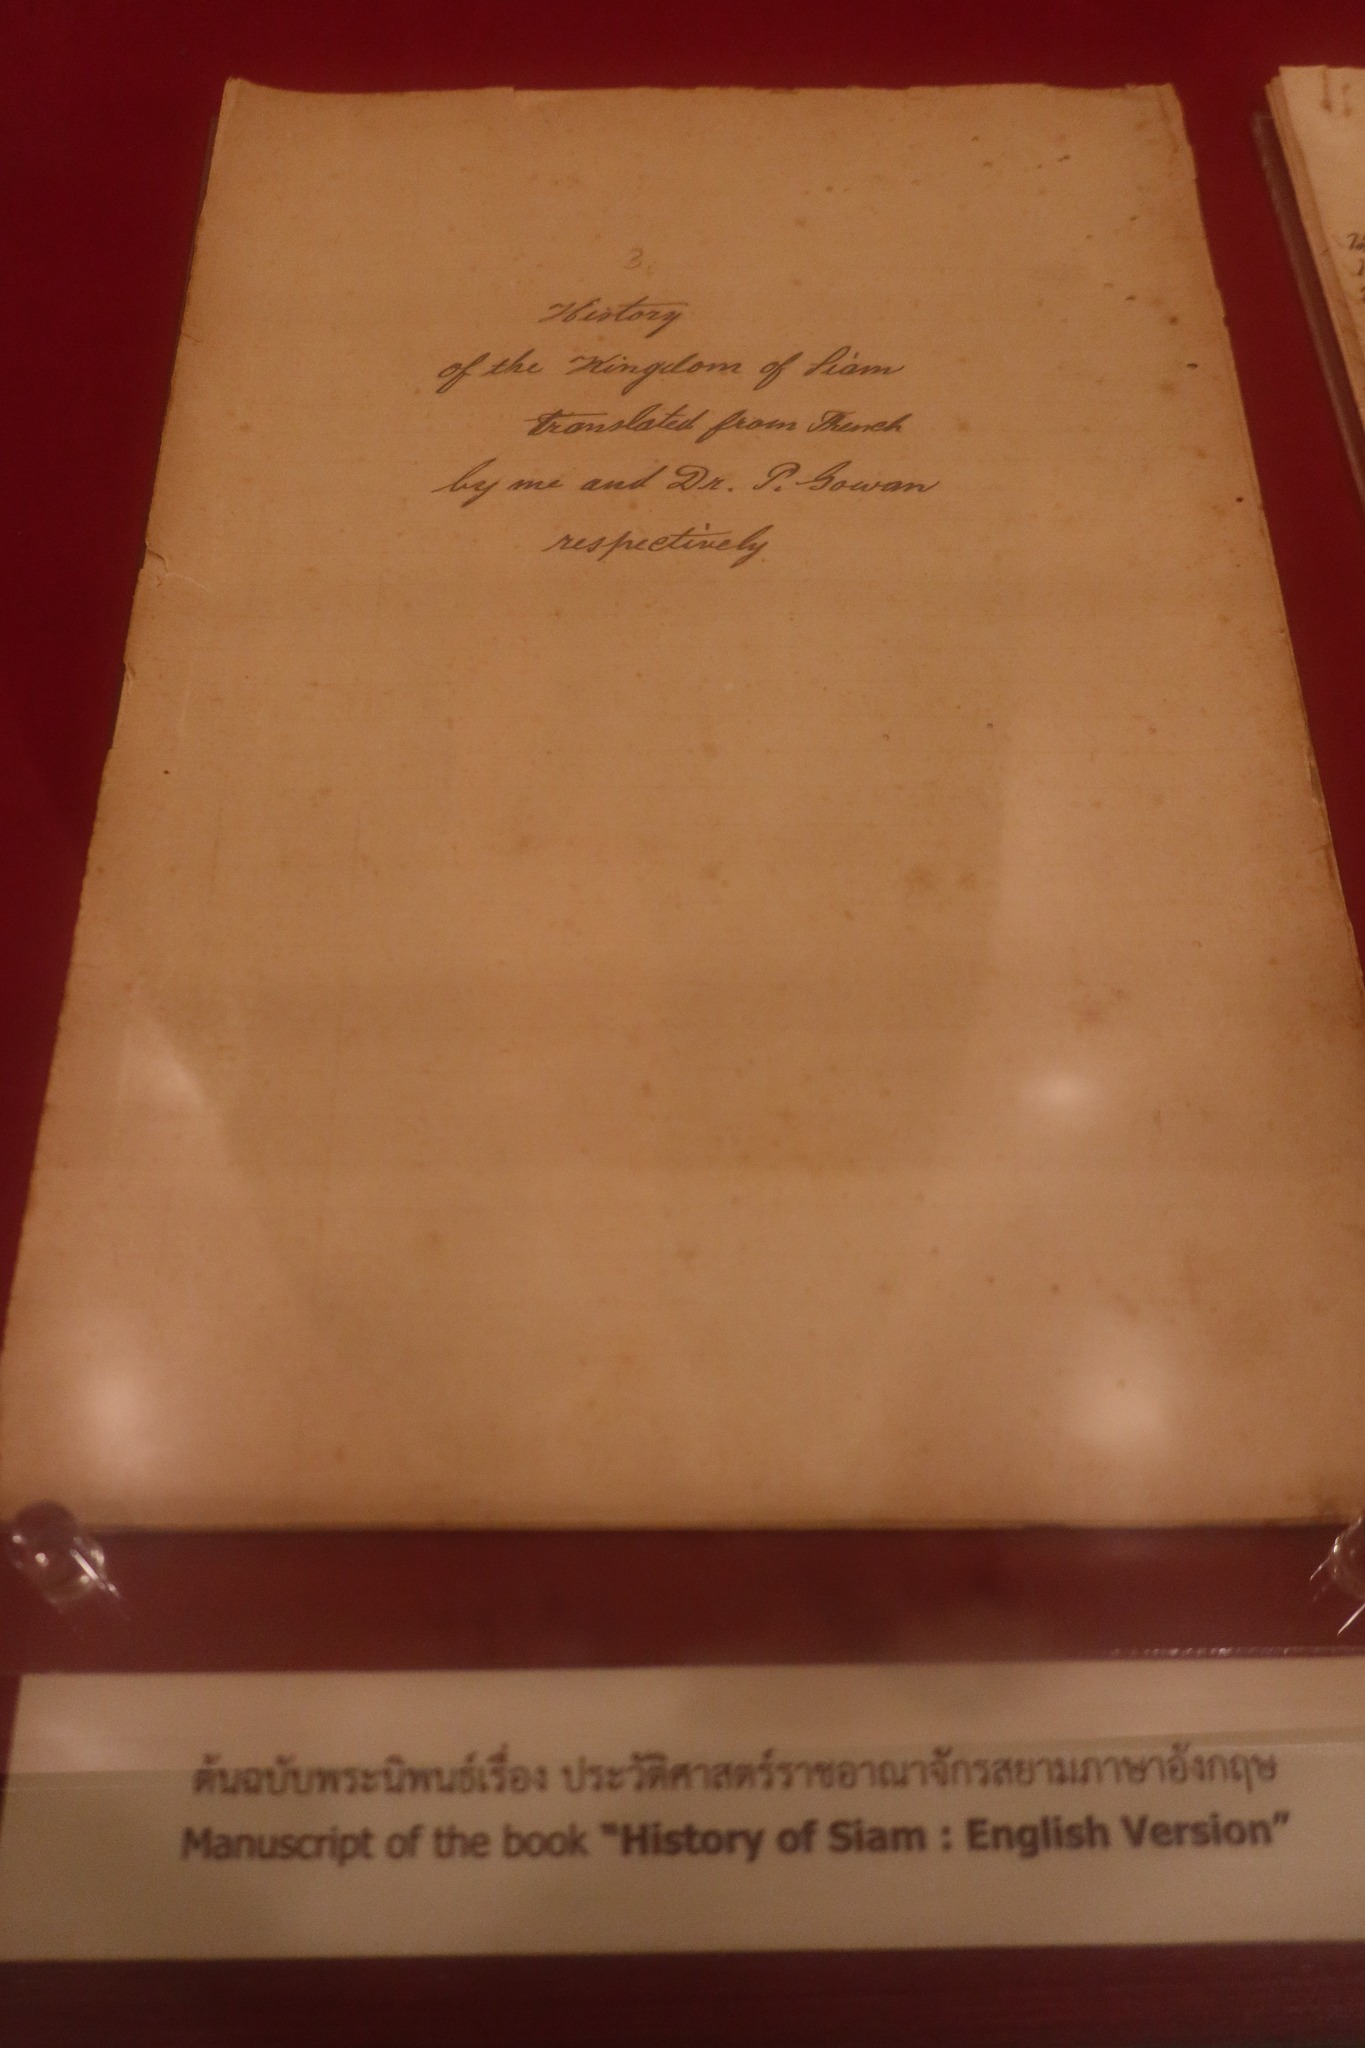 3.
History
of the Kingdom of Siam
translated from French
by me and Dr. P. Gowan
respectively
ต้นฉบับพระนิพนธ์เรื่อง ประวัติศาสตร์ราชอาณาจักรสยามภาษาอังกฤษ
Manuscript of the book "History of Siam : English Version"